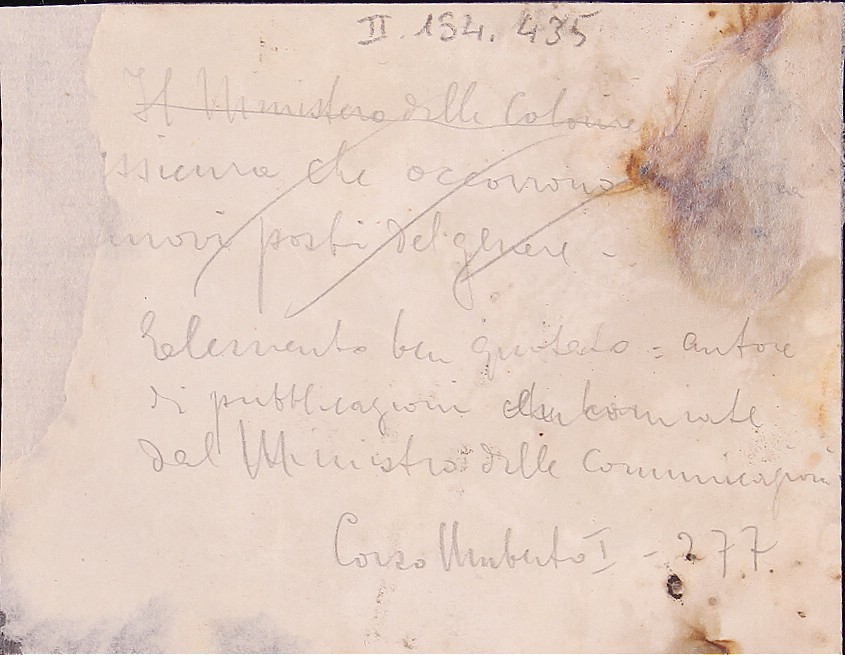 II. 134. 435
Il Ministero delle Colonie
ssicura che occorrono
nuovi posti del genere -
Elemento ben quotato = autore
di pubblicazioni
dal Ministro delle Comunicazioni
Corso Umberto I - 277